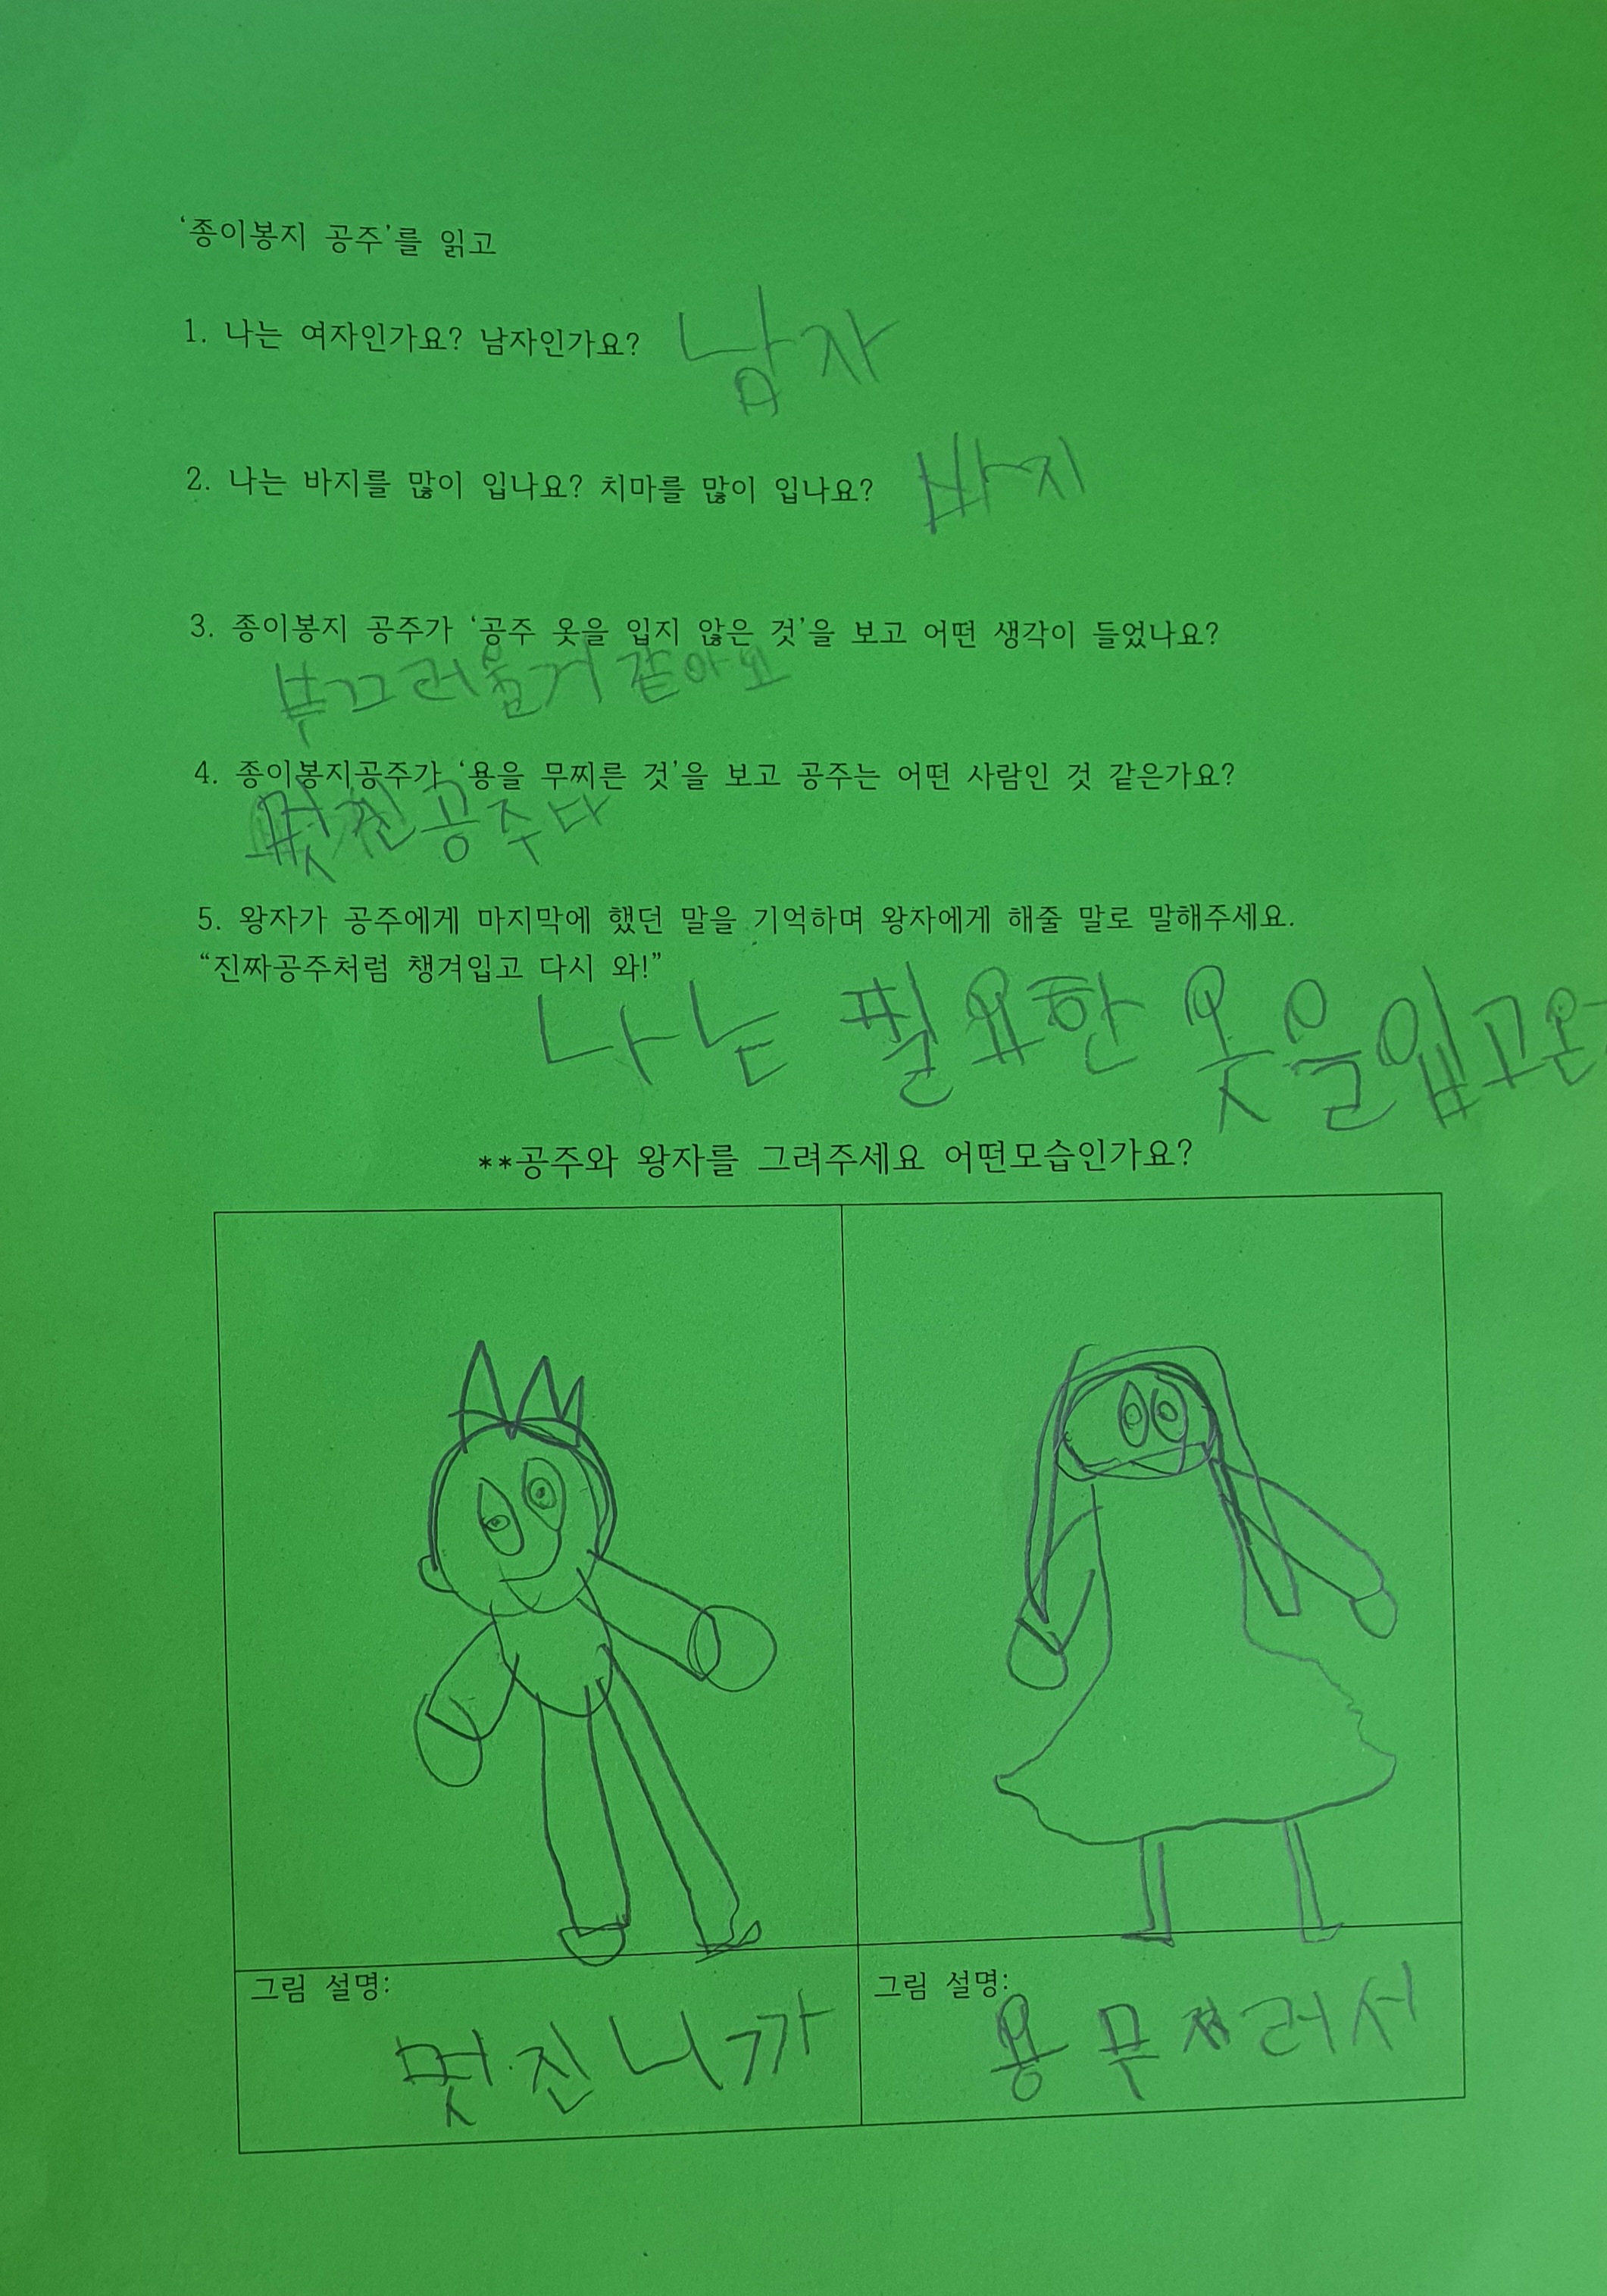 ‘종이봉지 공주’를 읽고
1. 나는 여자인가요? 남자인가요? 남자
2. 나는 바지를 많이 입나요? 치마를 많이 입나요? 바지
3. 종이봉지 공주가 ‘공주 옷을 입지 않은 것’을 보고 어떤 생각이 들었나요?
부끄러울거 같아요
4. 종이봉지공주가 ‘용을 무찌른 것’을 보고 공주는 어떤 사람인 것 같은가요?
멋진공주다
5. 왕자가 공주에게 마지막에 했던 말을 기억하며 왕자에게 해줄 말로 말해주세요.
“진짜공주처럼 챙겨입고 다시 와!”
나는 필요한 옷을입고온
**공주와 왕자를 그려주세요 어떤모습인가요?
그림 설명: 그림 설명:
멋진니까 용무찌러서